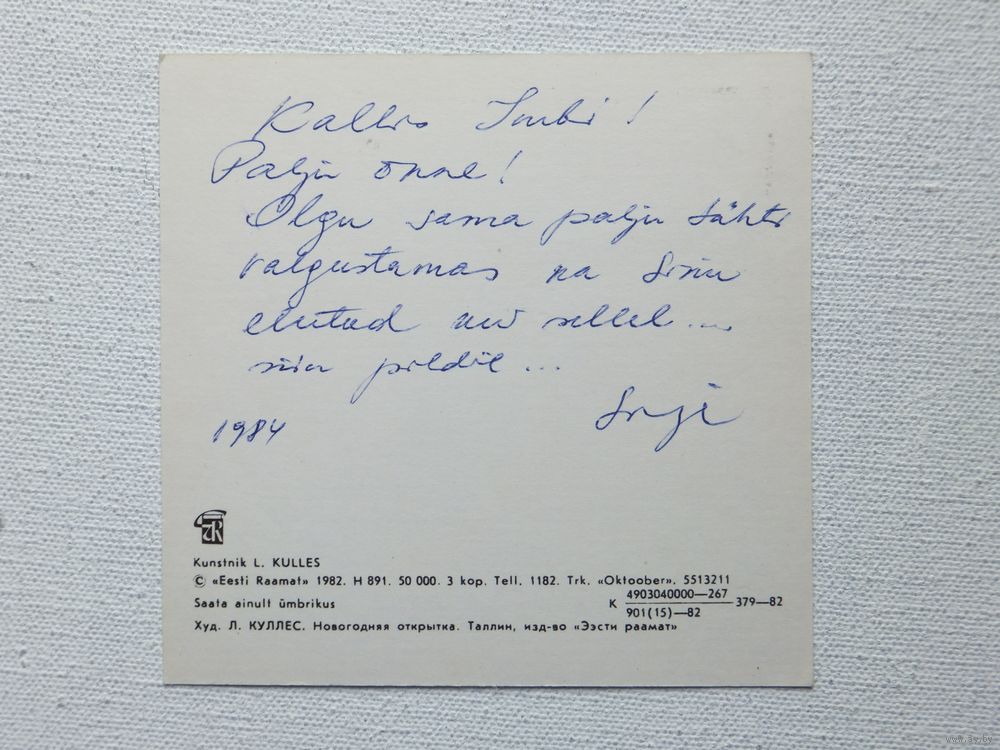 Kallis Imbi!
Palju õnne!
Olgu sama palju tähti
valgustamas ka Sinu
eluteed kui sellel...
siin pildil...
1984
ER
Kunstnik L. KULLES
© «Eesti Raamat» 1982. H 891. 50 000. 3 kop. Tell. 1182. Trk. «Oktoober». 5513211
Saata ainult ümbrikus
К 4903040000—267
901(15)—82 379—82
Худ. Л. КУЛЛЕС. Новогодняя открытка. Таллин, изд-во «Ээсти раамат»
www.av.by